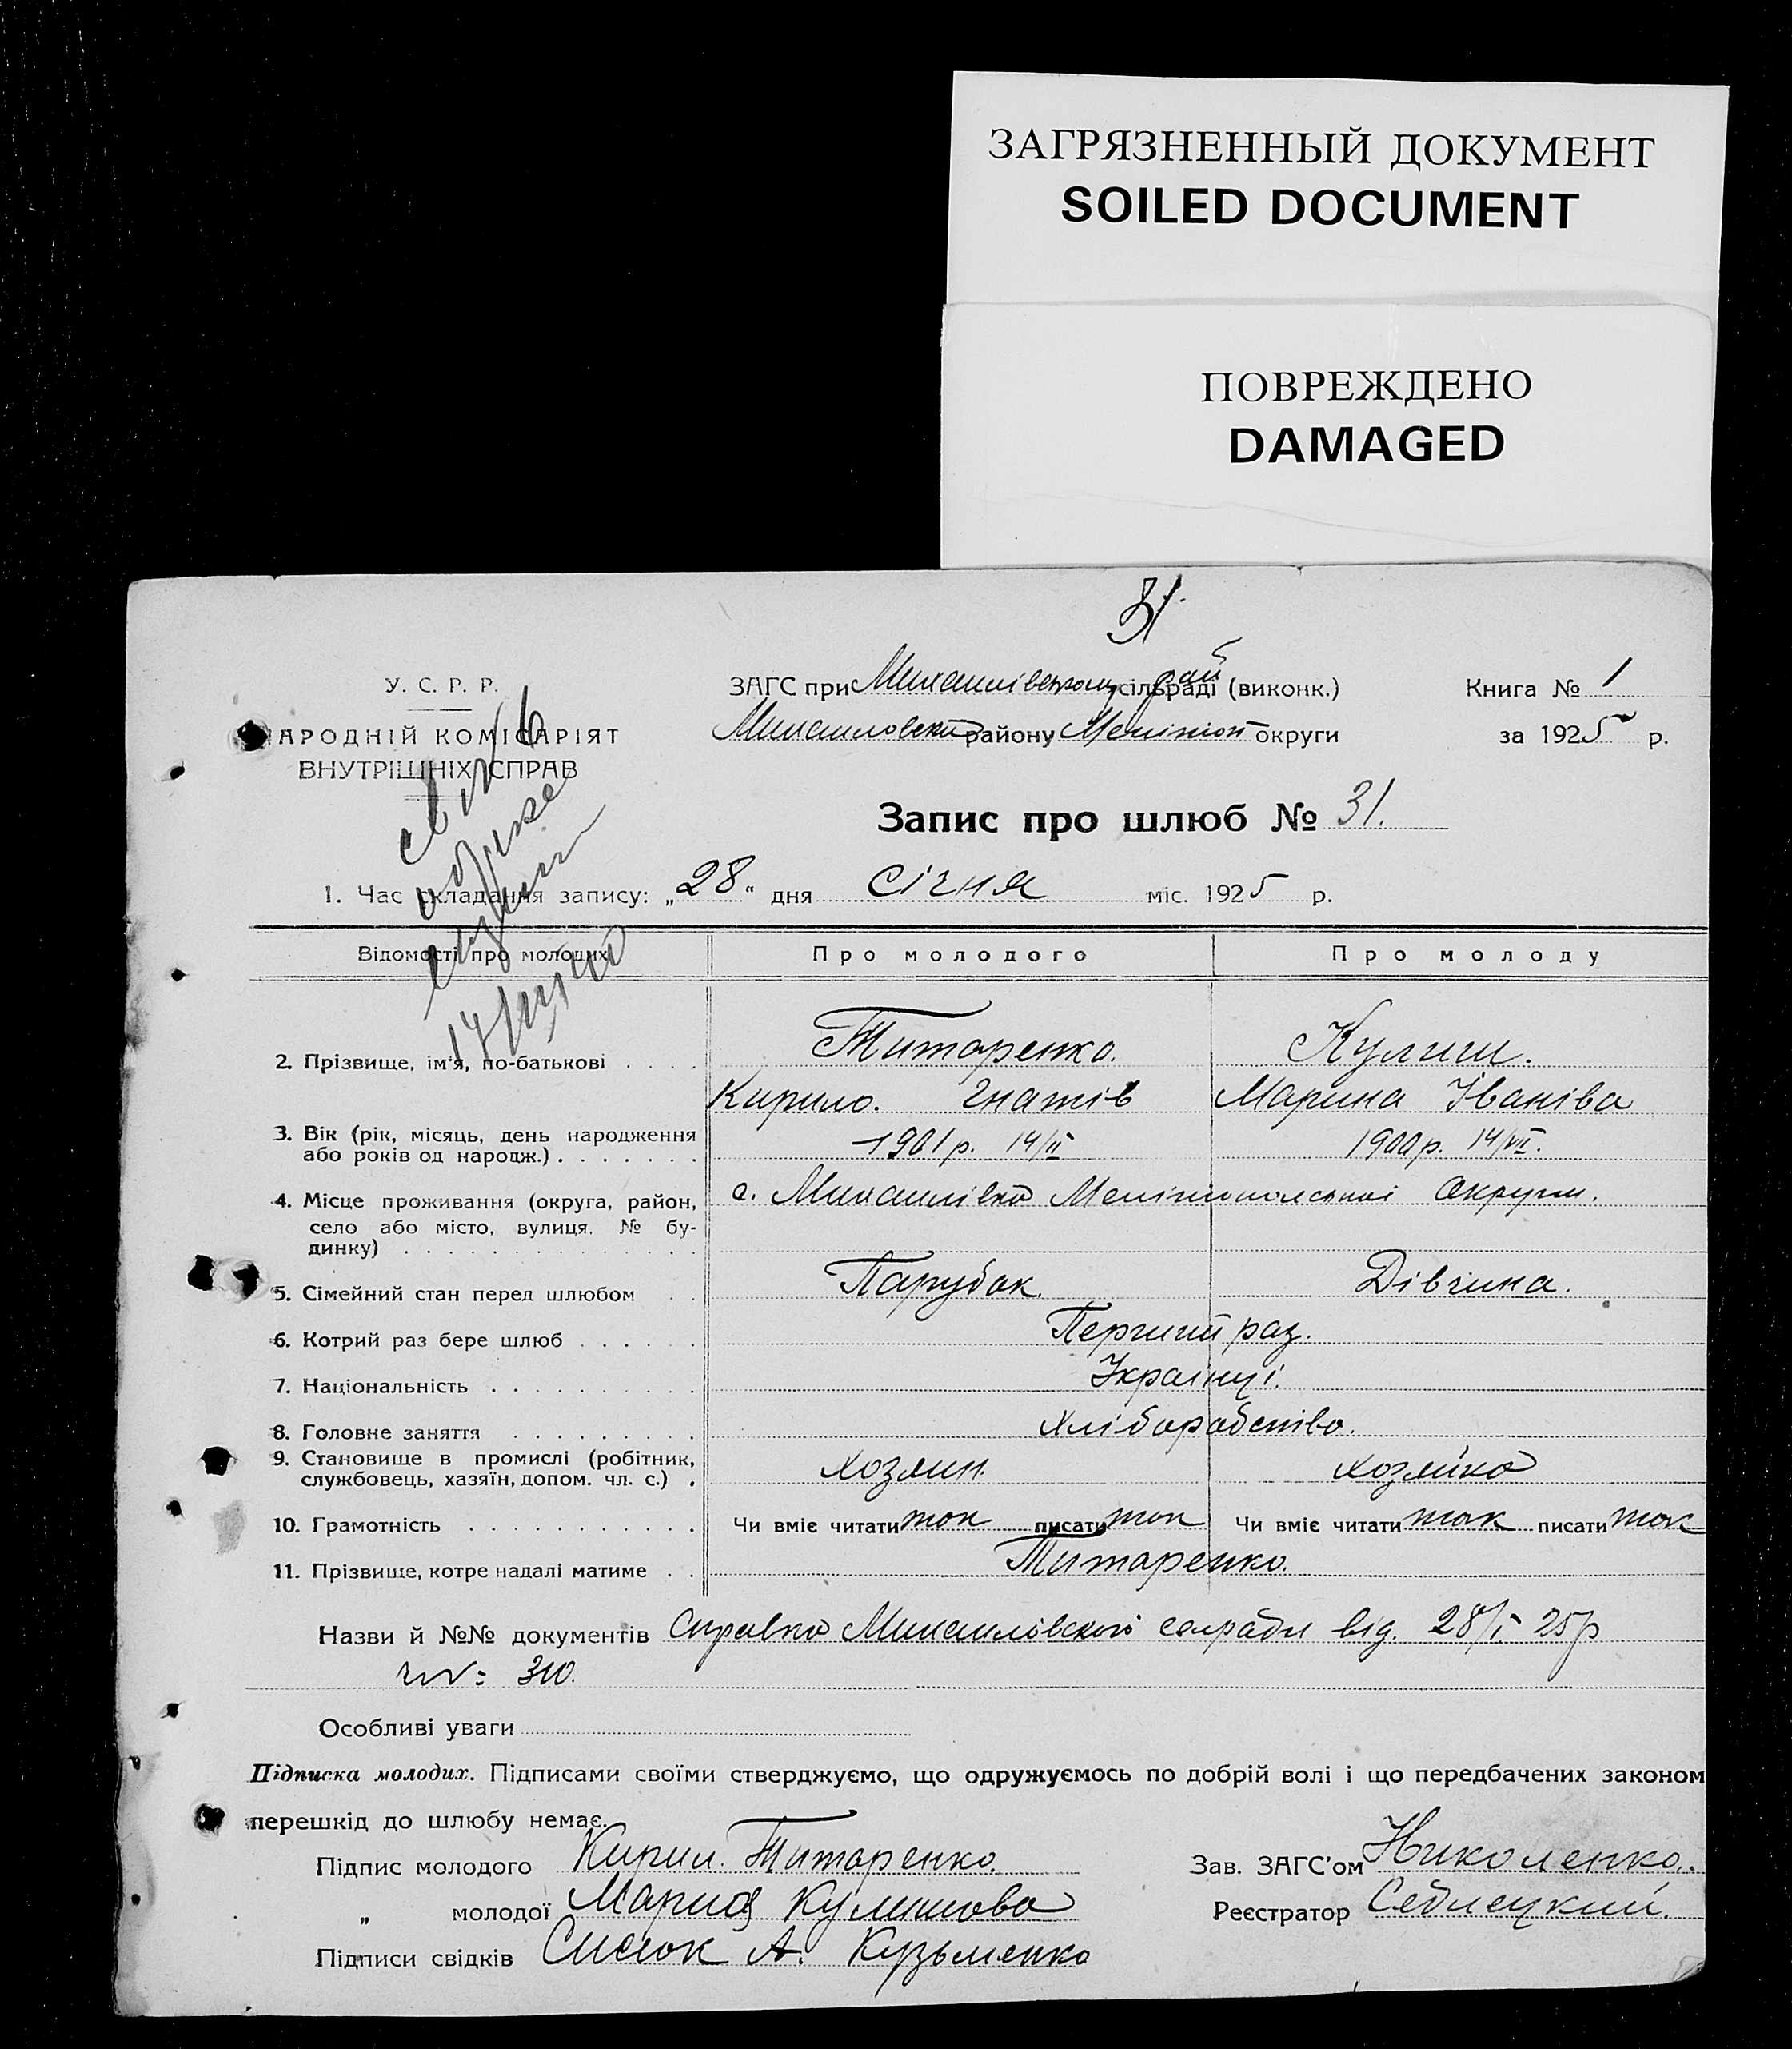 ЗАГРЯЗНЕННЫЙ ДОКУМЕНТ
SOILED DOCUMENT
ПОВРЕЖДЕНО
DAMAGED
31.
У. С. Р. Р.
АРОДНІЙ КОМІСАРІЯТ
ВНУТРІШНІХ СПРАВ
ЗАГС при Михаилівському рай сільраді (виконк.)
Книга № 1
Михаиловськ району Меліտоп округи
за 1925 р.
Запис про шлюб № 31.
1. Час складання запису: „28" дня січня міс. 1925 р.
Відомості про молодих
Про молодого
Про молоду
2. Прізвище, ім'я, по-батькові
Титаренко.
Кулиш.
Кирило. Гнатів
Марина Іваніва
3. Вік (рік, місяць, день народження або років од народж.)
1901 р. 14/II
1900 р. 14/VII.
4. Місце проживання (округа, район, село або місто, вулиця, № будинку)
с. Михаилівка Мелітопольської округи.
5. Сімейний стан перед шлюбом
Парубок.
Дівчина.
6. Котрий раз бере шлюб
Перший раз.
7. Національність
Українці.
8. Головне заняття
Хліборобство.
9. Становище в промислі (робітник, службовець, хазяїн, допом. чл. с.)
хозяин.
хозяйка
10. Грамотність
Чи вміє читати так писати так
Чи вміє читати так писати так
11. Прізвище, котре надалі матиме
Титаренко.
Назви й №№ документів Справка Михаилівської сельради від. 28/I 25 р
310.
Особливі уваги
Підписка молодих. Підписами своїми стверджуємо, що одружуємось по добрій волі і що передбачених законом
перешкід до шлюбу немає.
Підпис молодого Кирил. Титаренко.
Зав. ЗАГС'ом Николенко.
„ молодої Мария Кулишова
Реєстратор Седлецкий.
Підписи свідків А. Кузьменко